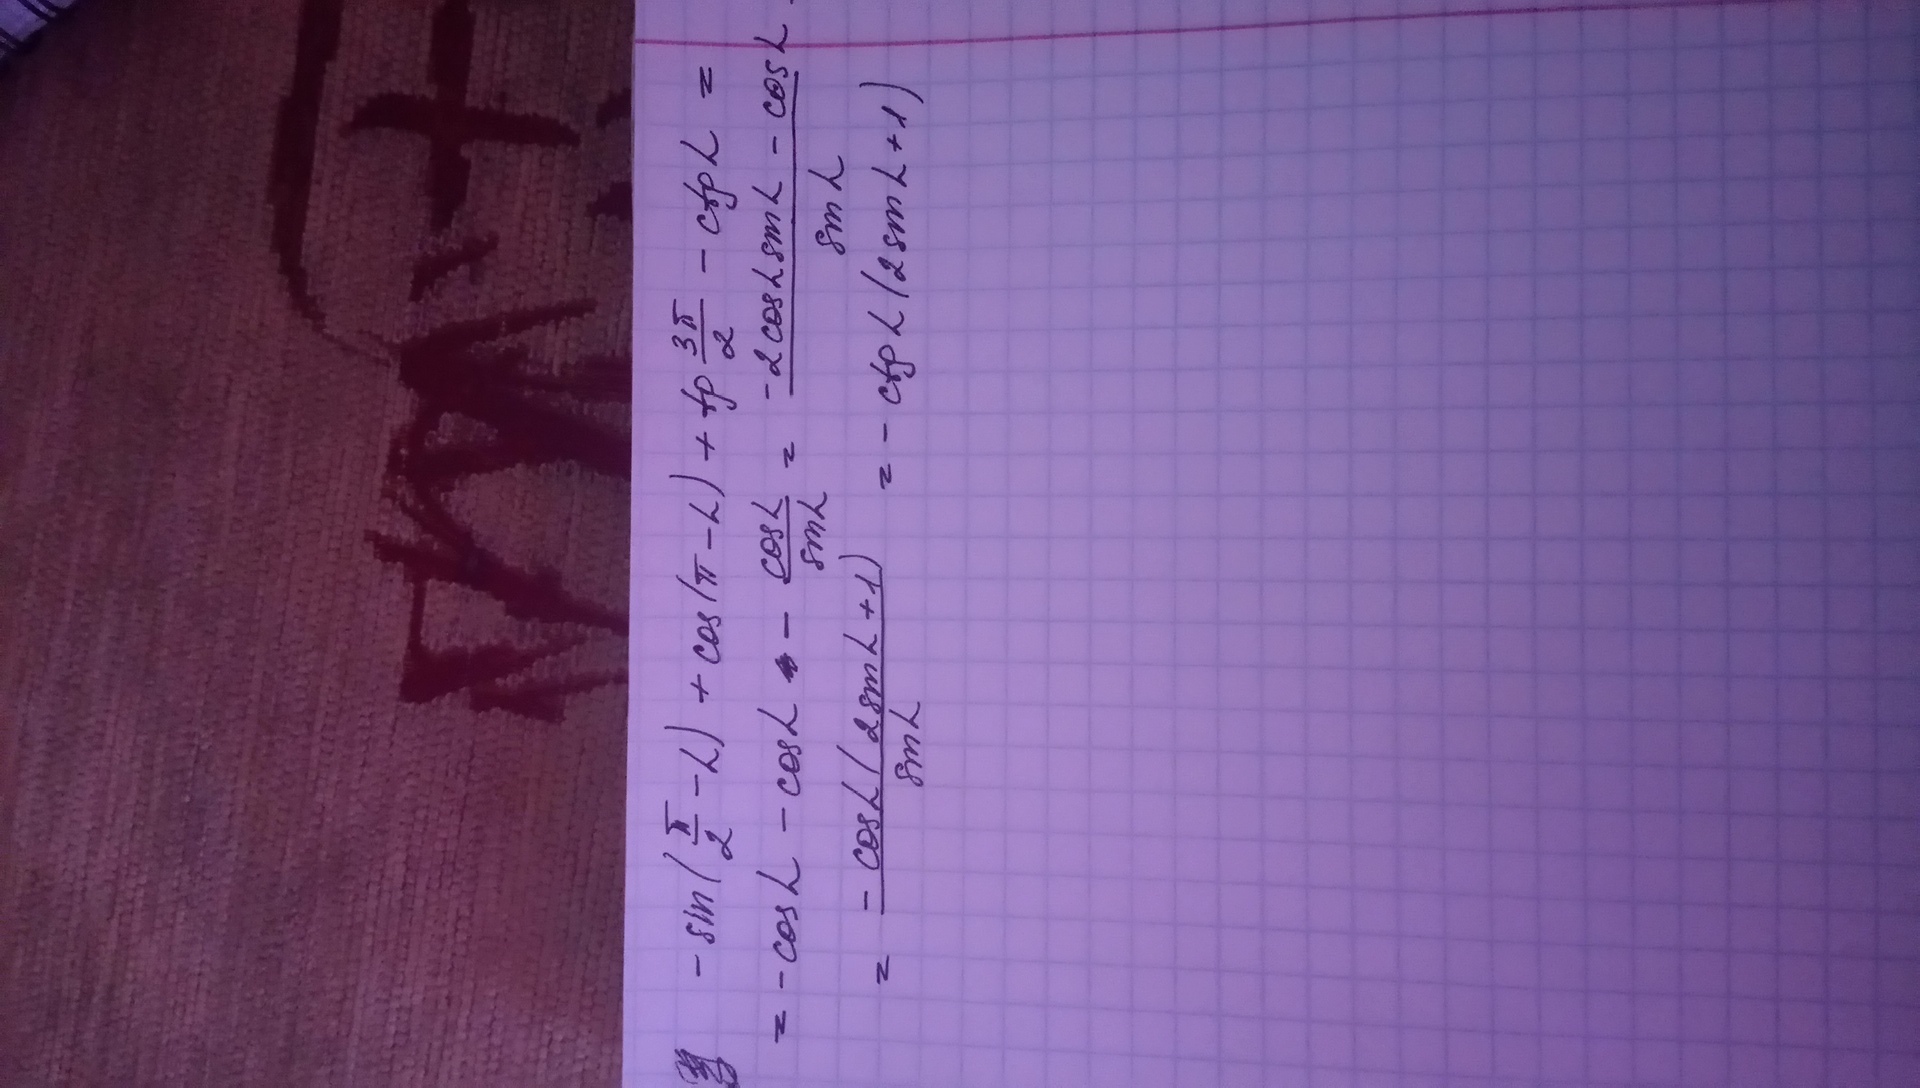 - sin(π/2 - α) + cos(π - α) + tg 3π/2 - ctg α =
= - cos α - cos α - cos α/sin α = (-2 cos α sin α - cos α)/sin α
= - cos α (2 sin α + 1)/sin α = - ctg α (2 sin α + 1)